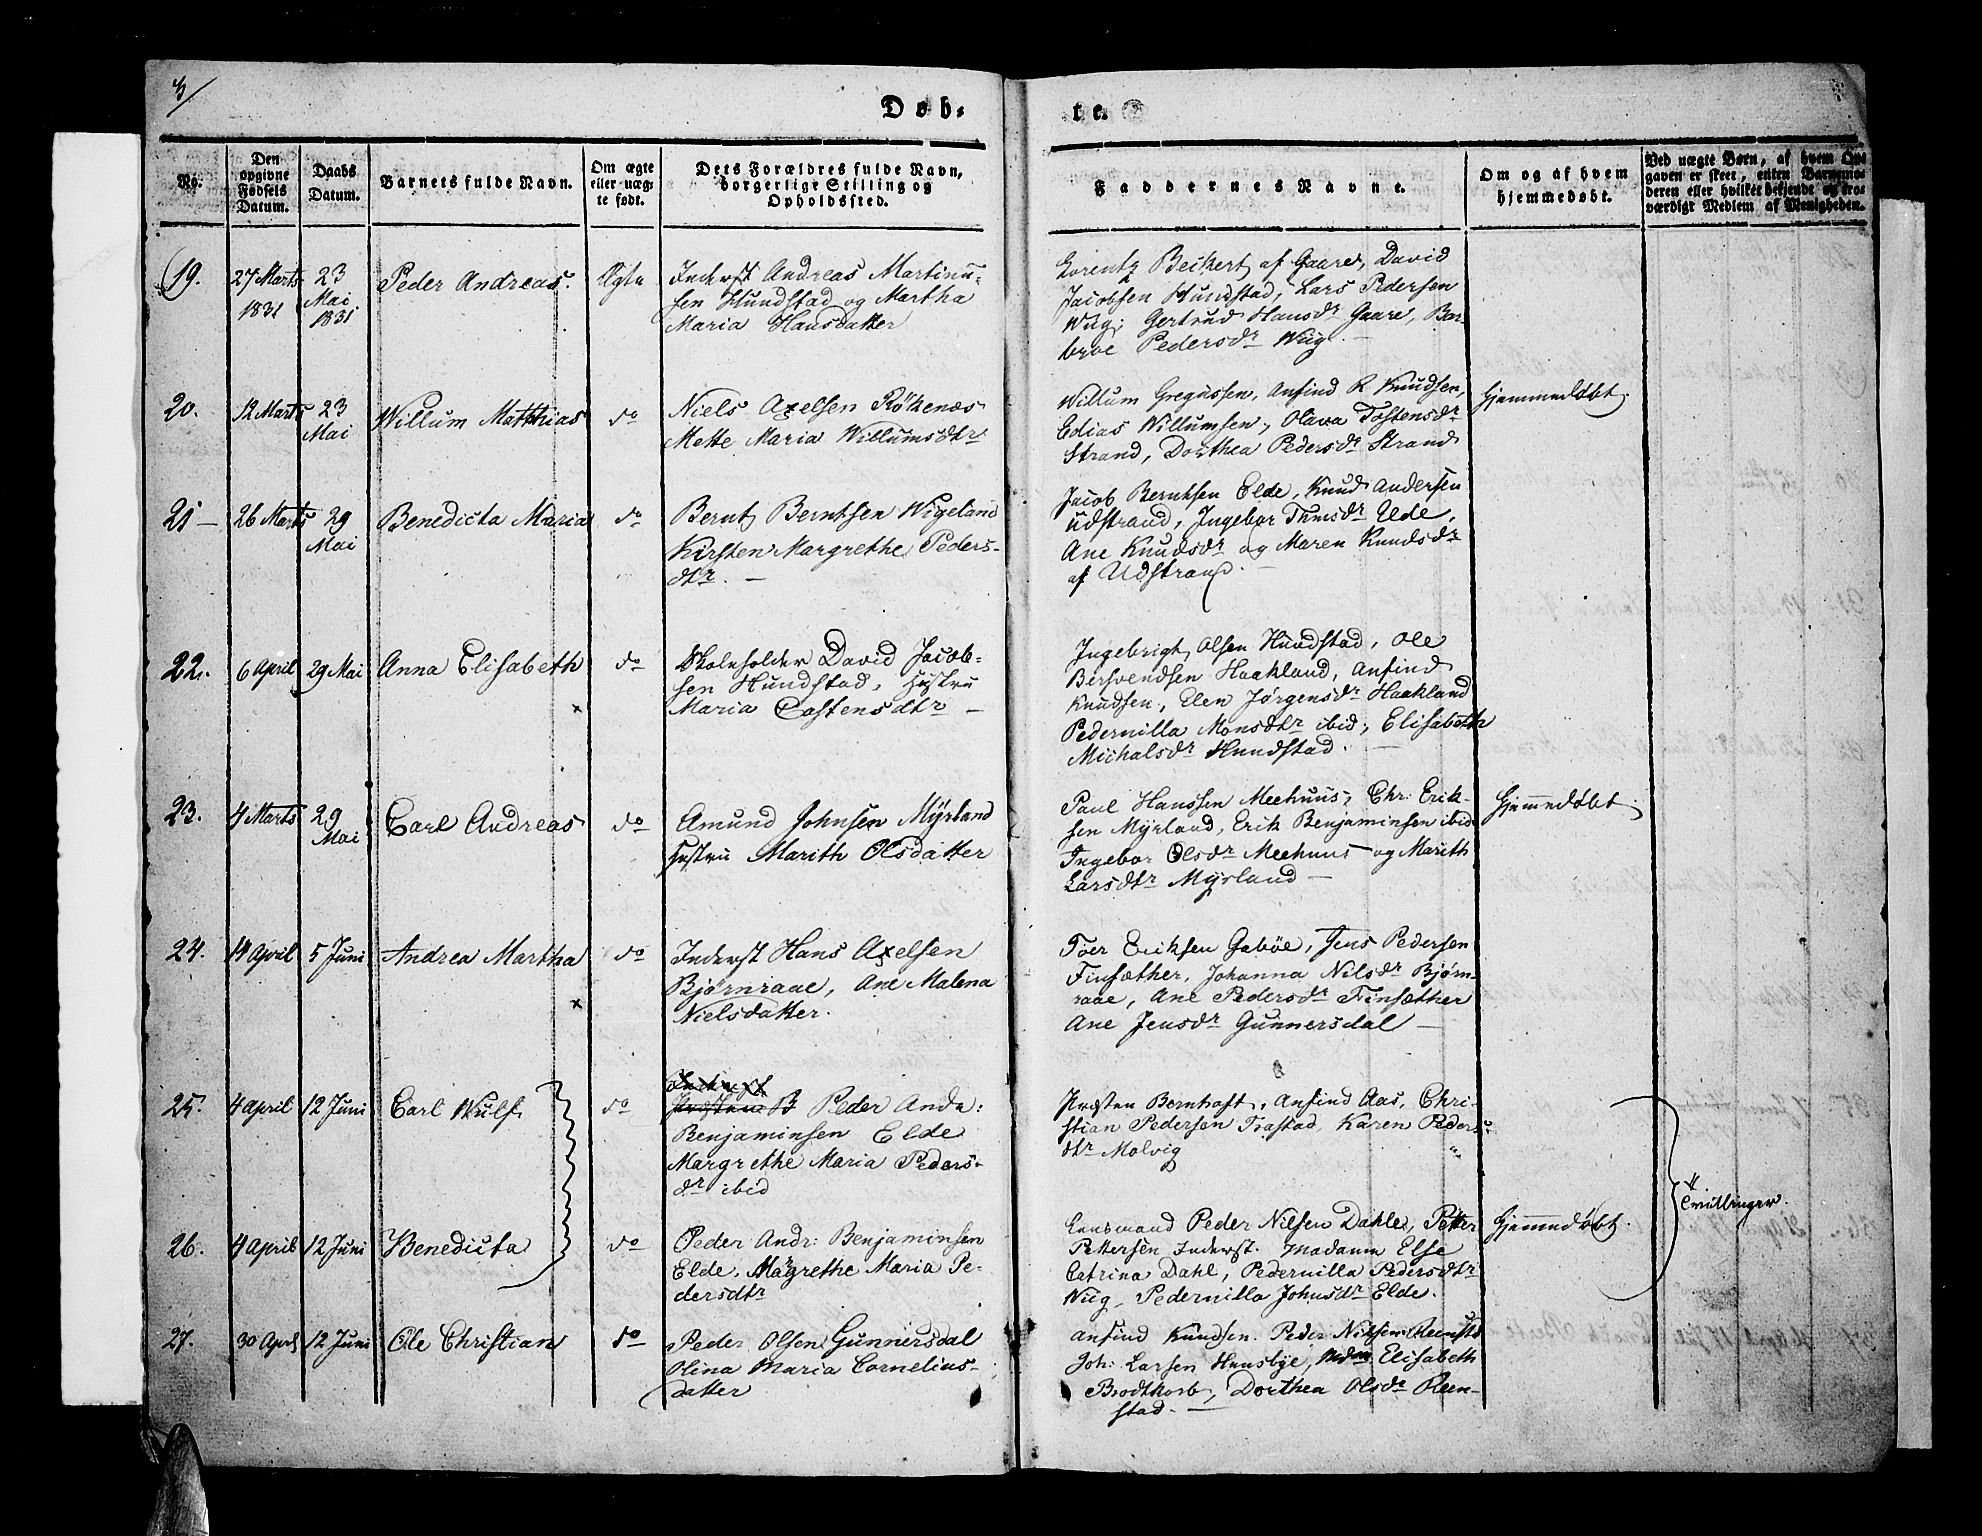 3/
Døb-
te.
No.
Den opgivne Fødsels Datum.
Daabs Datum.
Barnets fulde Navn.
Om ægte eller uæg-te født.
Dets Forældres fulde Navn, borgerlige Stilling og Opholdssted.
Faddernes Navne.
Om og af hvem hjemmedøbt.
Ved uægte Børn, af hvem Op-
gaven er skeet, enten Barnemo-
deren eller hvilket bekjendt og tro-
værdigt Medlem af Menigheden.
19.
27 Marts
1831
23
Mai
1831
Peder Andreas.
Ægte
Inderst Andreas Martinu-
sen Hundstad og Martha
Maria Hansdatter
Lorentz Beckert af Gaare, David
Jacobsen Hundstad, Lars Pedersen
Wiig; Gertrud Hansdr Gaare, Bar-
broe Pedersdr Wiig. —
20.
12 Marts
23
Mai
Willum Matthias
do
Niels Axelsen Rökenæs
Mette Maria Willumsdtr
Willum Gregussen, Anfind R Knudsen,
Edias Willumsen, Olava Tostensdr
Strand, Dorthea Pedersdr Strand
Hjemmedøbt.
21 —
26 Marts
29
Mai
Benedicta Maria
do
Bernt Berntsen Wigeland
Kirsten Margrethe Peders-
dtr. —
Jacob Berntsen Elde, Knud Andersen
Udstrand, Ingebor Thmsdr Elde,
Ane Knudsdr og Maren Knudsdr
af Udstrand. —
22.
6 April
29 Mai
Anna Elisabeth
do
Skoleholder David Jacob-
sen Hundstad, Hustru
Maria Tostensdtr —
Ingebrigt Olsen Hundstad, Ole
Bersvendsen Haakland, Anfind
Knudsen, Elen Jørgensdr Haakland
Pedernilla Monsdtr ibid; Elisabeth
Michalsdr Hundstad. —
23.
4 Marts
29
Mai
Carl Andreas
do
Amund Johnsen Myrland
Hustru Marith Olsdatter
Paul Hanssen Meehuus, Chr. Erik-
sen Myrland, Erik Benjaminsen ibid
Ingebor Olsdr Meehuus og Marith
Larsdtr Myrland —
Hjemmedøbt
24.
14 April
5 Juni
Andrea Martha
do
Inderst Hans Axelsen
Bjørnraae, Ane Malena
Nielsdatter.
Toer Eriksen Gabøe, Jens Pedersen
Finsæther, Johanna Nilsdr Bjørn-
raae, Ane Pedersdr Finsæther
Ane Jensdr Gunnersdal —
25.
4 April
12 Juni
Carl Wulf
do
Inderst
Præsten B Peder Andr:
Benjaminsen Elde
Margrethe Maria Peders-
dr ibid
Præsten Bernhoft, Anfind Aas, Chri-
stian Pedersen Trastad, Karen Peders-
dtr Molvig
26.
4 April
12 Juni
Benedicta
do
Peder Andr: Benjaminsen
Elde, Margrethe Maria Pe-
dersdtr
Lensmand Peder Nilsen Dahle, Petter
Pettersen Inderst. Madame Else
Catrina Dahl, Pedernilla Pedersdtr
Wiig, Pedernilla Johnsdr Elde.
Hjemmedøbt.
Tvillinger.
27.
30 April
12 Juni
Ole Christian
do
Peder Olsen Gunnersdal
Olina Maria Cornelius-
datter
Anfind Knudsen. Peder Nilsen Reensta
Joh: Larsen Huusbye, Mdm Elisabeth
Brodtkorb, Dorthea Olsdr Reen-
stad. —